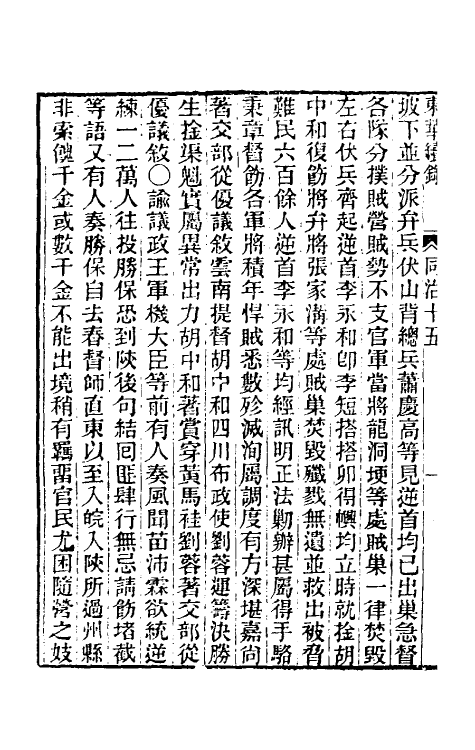 東華續錄 同治十五 一
坡下並分派弁兵伏山背總兵蕭慶高等見逆首均已出巢急督
各隊分撲賊營賊勢不支官軍當將龍洞埂等處賊巢一律焚毀
左右伏兵齊起逆首李永和卽李短搭搭卯得㒜均立時就捡胡
中和復飭將弁將張家溝等處賊巢焚毀殲戮無遺並救出被脅
難民六百餘人逆首李永和等均經訊明正法勦辦甚屬得手駱
秉章督飭各軍將積年悍賊悉數殄滅洵屬調度有方深堪嘉尚
著交部從優議敘雲南提督胡中和四川布政使劉蓉運籌決勝
生捡渠魁實屬異常出力胡中和著賞穿黃馬袿劉蓉著交部從
優議敘〇諭議政王軍機大臣等前有人奏風聞苗沛霖欲統逆
練一二萬人往投勝保恐到陝後句結囘匪肆行無忌請飭堵截
等語又有人奏勝保自去春督師直東以至入皖入陝所過州縣
非索傀千金或數千金不能出境稍有羈畱官民尤困隨營之妓